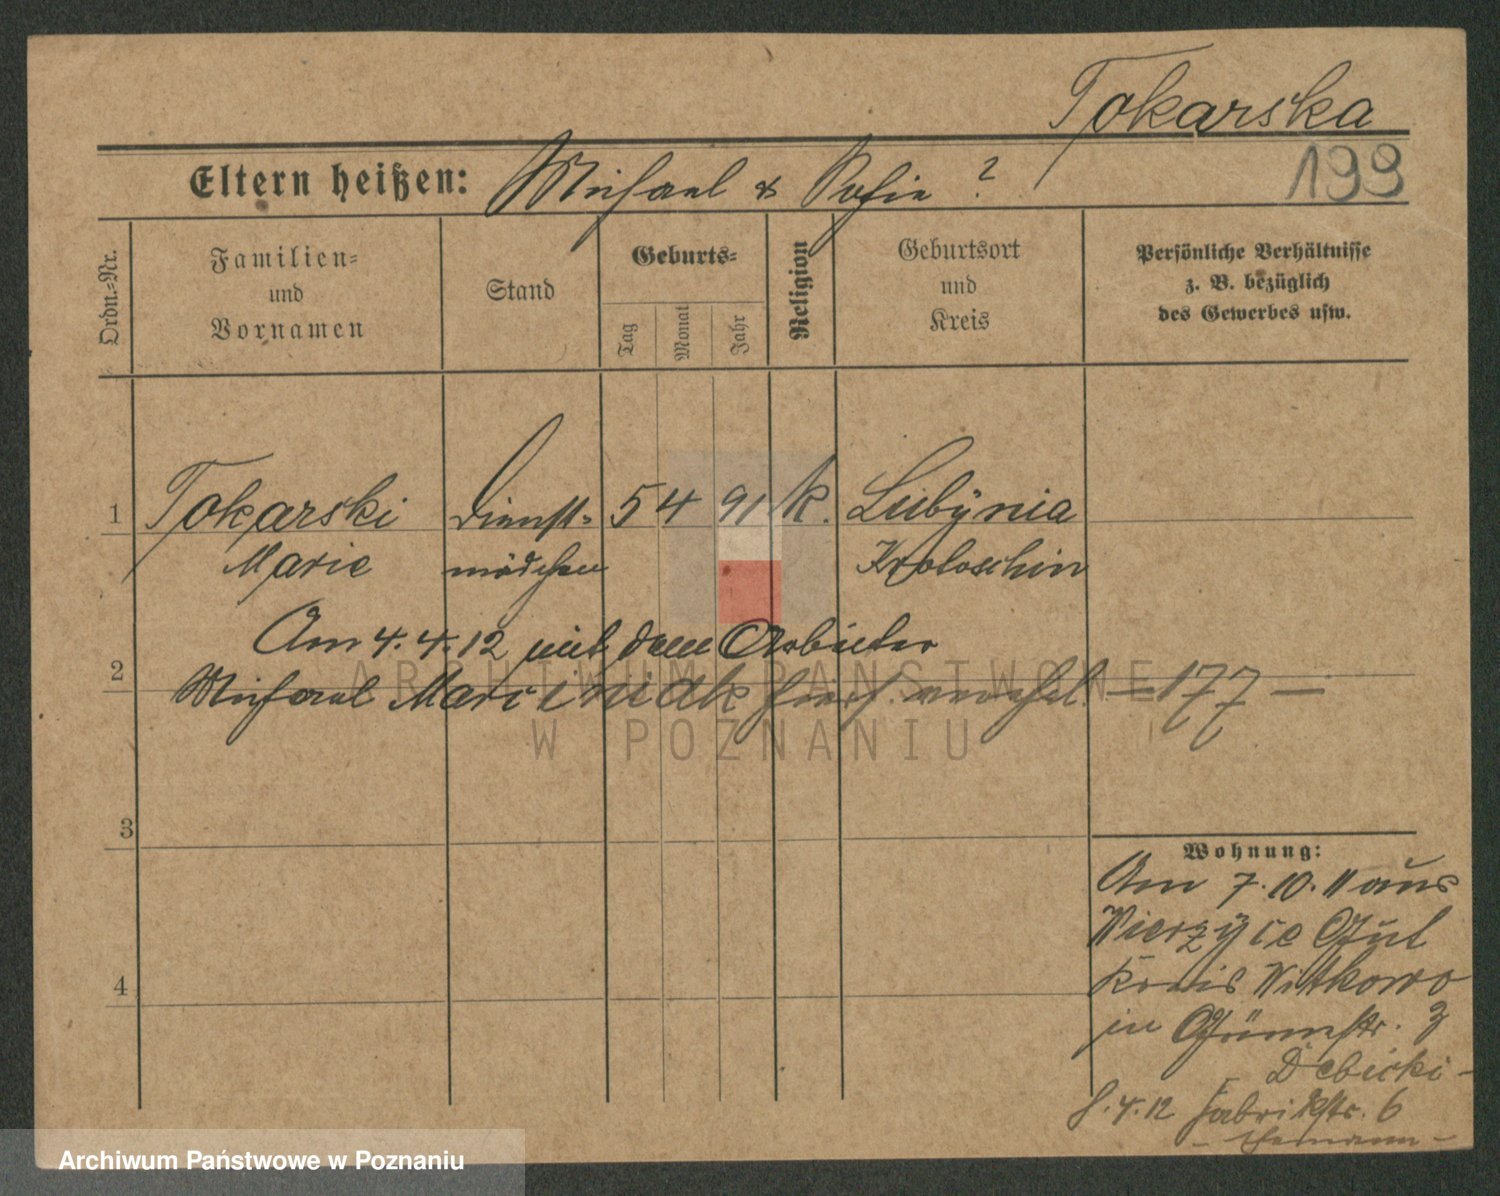 Tokarska
199
Eltern heißen: Michael & Sofie ?
Ordn.-Nr.
Familien-
und
Vornamen
Stand
Geburts-
Tag
Monat
Jahr
Religion
Geburtsort
und
Kreis
Persönliche Verhältnisse
z. B. bezüglich
des Gewerbes usw.
1 Tokarski Dienst- 5 4 91 k. Lubynia
Marie mädchen Krotoschin
Am 4. 4. 12 mit dem Arbeiter
2 Michael Marciniak hierf. verehel. — 177 —
3
4
Wohnung:
Am 7. 10. 11 aus
Wierzyce Gut
Kreis Witkowo
in Grünestr. 3
Debicki -
4. 12 Fabrikstr. 6
- Ehemann -
ARCHIWUM PAŃSTWOWE
W POZNANIU
Archiwum Państwowe w Poznaniu